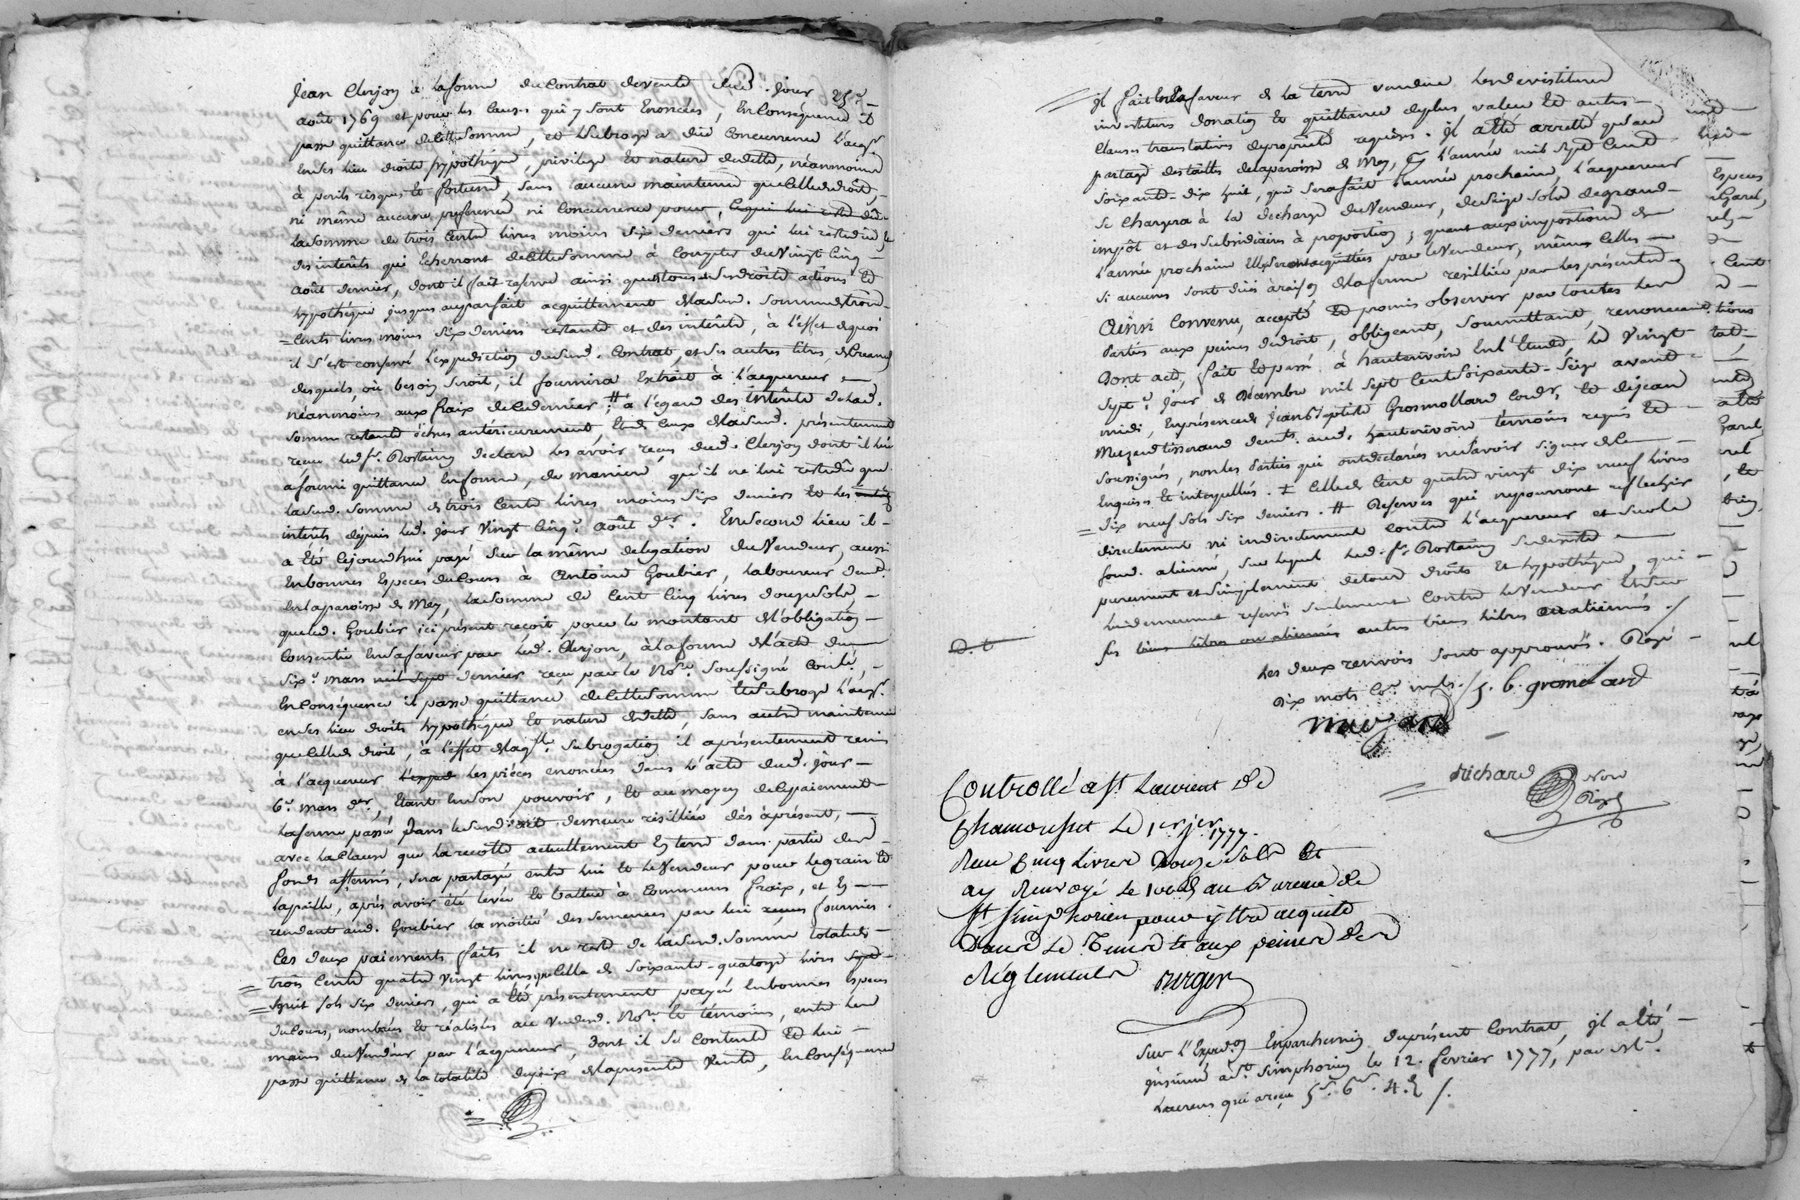 Jean Clerjon a la forme du Contrat de vente dud. jour 25e.
août 1769 et pour les causes qui y sont Enoncées, En Conséquence il
passe quittance de cette somme, et subroge a due Concurrence l'acqr.
En ses lieu droits hypothéque, privilege Et nature de dette, neanmoins
à perils risques Et fortune, sans aucune maintenue que celle de droit,
ni même aucune preference ni Concurrence pour, ce qui lui reste dû
la somme de trois Cents livres moins six deniers qui lui reste dûe &
des intérêts qui Echerront de cette somme à Compter du Vingt Cinq
août dernier, dont il fait reserve ainsi que de tous ses droits actions Et
hypothéque jusques au parfait acquittement de lad. somme de trois
Cents livres moins six deniers restante et des intérêts, à l'effet de quoi
il s'est conservé l'expedition dud. Contrat, et des autres titres de Creance
desquels, où besoin seroit, il fournira Extrait à l'acquereur
néanmoins aux fraix de ce dernier; # à l'égard des intérêts de lad.
somme restante échus antérieurement Et de ceux de lad. présentement
reçue led. sr. Rostaing declare les avoir reçus dud. Clerjon dont il lui
a fourni quittance En forme, de maniere qu'il ne lui reste dû que
lad. somme de trois Cents livres moins six deniers Et les
intérêts depuis led. jour Vingt Cinq août der. En second lieu il
a Eté cejourd'hui payé sur la même delegation du Vendeur, aussi
En bonnes Especes du Cours à Antoine Goubier, laboureur demt.
En la paroisse de Mey, la somme de Cent Cinq livres douze sols
que led. Goubier ici présent reçoit pour le montant de l'obligation
Consentie En sa faveur par led. Clerjon, à la forme de l'acte du
six mars mil sept dernier reçu par le Nore. soussigné Conlé.
En Conséquence il passe quittance de cette somme Et subroge l'acqr.
en ses lieu droits hypothéque Et nature de dette, sans autre maintenue
que celle de droit, à l'effet de laqle. subrogation il a présentement remis
à l'acquereur les piéces enoncées dans l'acte dud. jour
6e. mars der, Etant En son pouvoir, Et au moyen de ce paiement
la ferme passée dans led. acte demeure resilliée dès àprésent,
avec la clause que la recolte actuellement En terre dans partie des
fonds affermés, sera partagé entre lui Et le Vendeur pour le grain Et
la paille, après avoir été levée Et battue à communs fraix, et En
rendant aud. Goubier la moitié des semences par lui fournies.
Ces deux paiements faits il ne reste de lad. somme totale de
trois Cents quatre Vingt livres que celle de soixante-quatorze livres
huit sols six deniers, qui a Eté présentement payée En bonnes Especes
du Cours, nombrées Et réalisées au Vu dud. Nore. Et témoins, entre les
mains du Vendeur par l'acquereur, dont il se contente Et lui
passe quittance de la totalité du prix de la présente Vente, En Conséquence
il fait En sa faveur de la terre vendue les devestitures
investitures donation Et quittance de plus value Et autres
Clauses translatives de propriété requises. il a été arretté qu'au
partage des tailles de la paroisse de Mey, pour l'année mil sept Cent
soixante-dix huit, qui sera fait l'année prochaine, l'acquereur
se chargera à la decharge du Vendeur, de seize sols de grand
impôt et des subsidiaires à proportion; quant aux impositions de
l'année prochaine Elles seront acquittées par le Vendeur, mêmes celles
si aucunes sont dûes à raison de la ferme resilliée par les présentes
Ainsi Convenu, accepté Et promis observer par toutes les
Parties aux peines de droit, obligeant, soumettant, renonceant
Dont acte, fait Et passé à hauterivoire En l'Etude, le Vingt
sept. jour de Décembre mil sept Cent soixante-seize avant
midi, En présence de Jean Bapte. Grosmollard Cordr. Et de Jean
Muzard tisserand demts. aud. hauterivoire témoins requis Et
soussignés, non les Parties qui ont declarés ne savoir signer de ce
Enquises Et interpellées. ‡ celle de Cent quatre vingt dix neuf livres
dix neuf sols six deniers. # Reserves qui ne pourront reflechir
directement ni indirectement contre l'acquereur et sur le
fond aliené, sur lequel led. sr. Rostaing se demet
purement et simplement de tous droits Et hypothéque, qui
lui demeurent reservés seulement contre le Vendeur Et sur
ses biens libres ou alienés autres biens libres ou alienés ./
D. t
Les deux renvois sont approuvés. Rayé
Dix mots Co. nuls ./ J. B. gromolard
muzard
Richard Nore
Royal
Controllé a St Laurent De
Chamousset Le 1er jer 1777.
Reçu Cinq Livres Douze Sols et
ay Renvoyé le 100e au Bureau de
St Simphorien pour y Etre acquité
Dans Le Tems et aux peines des
Réglements Burger
Sur l'Expedon En parchemin du présent Contrat, il a Eté
insinué à St. Simphorien le 12. fevrier 1777, par Mr.
Laurens qui a reçu 5s. 6d. 4.